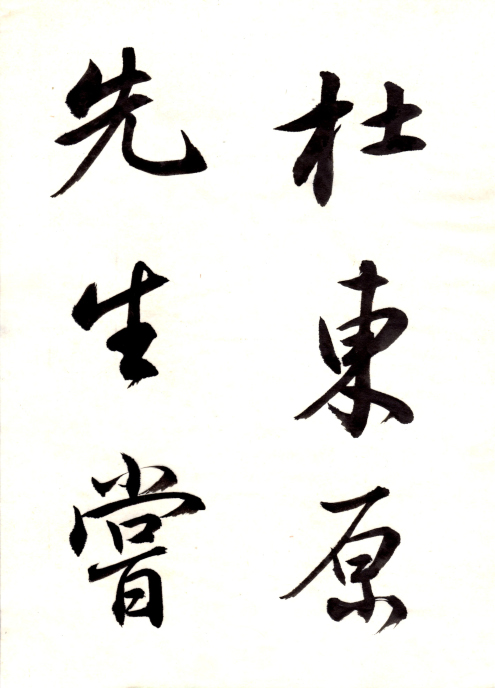 杜東原
先生嘗